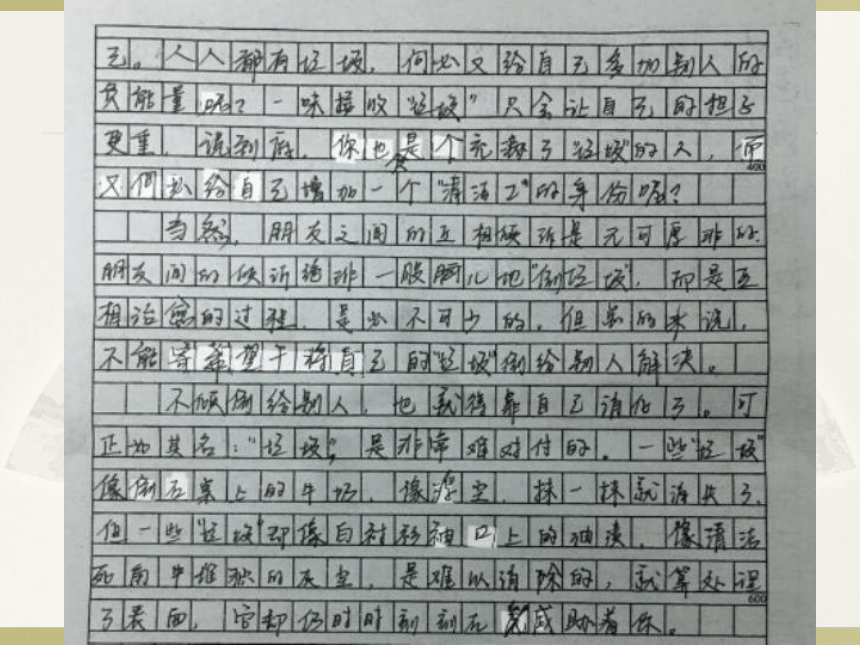 己。人人都有垃圾，何必又给自己多加别人的
负能量呢？一味接收“垃圾”只会让自己的担子
更重，说到底，你也是个充满了“垃圾”的人，而
400
又何必给自己增加一个“清洁工”的身份呢？
当然，朋友之间的互相倾诉是无可厚非的。
朋友间的倾诉绝非一股脑儿地“倒垃圾”，而是互
相治愈的过程，是必不可少的。但总的来说，
不能寄希望于将自己的“垃圾”倒给别人解决。
不倾倒给别人，也就得靠自己消化了。可
正如其名：“垃圾”，是非常难对付的。一些“垃圾”
像倒在桌上的牛奶，像浮尘，抹一抹就消失了，
但一些“垃圾”却像白衬衫袖口上的油渍，像清洁
死角中堆积的灰尘，是难以消除的，就算处理
600
了表面，它却仍时时刻刻在威胁着你。